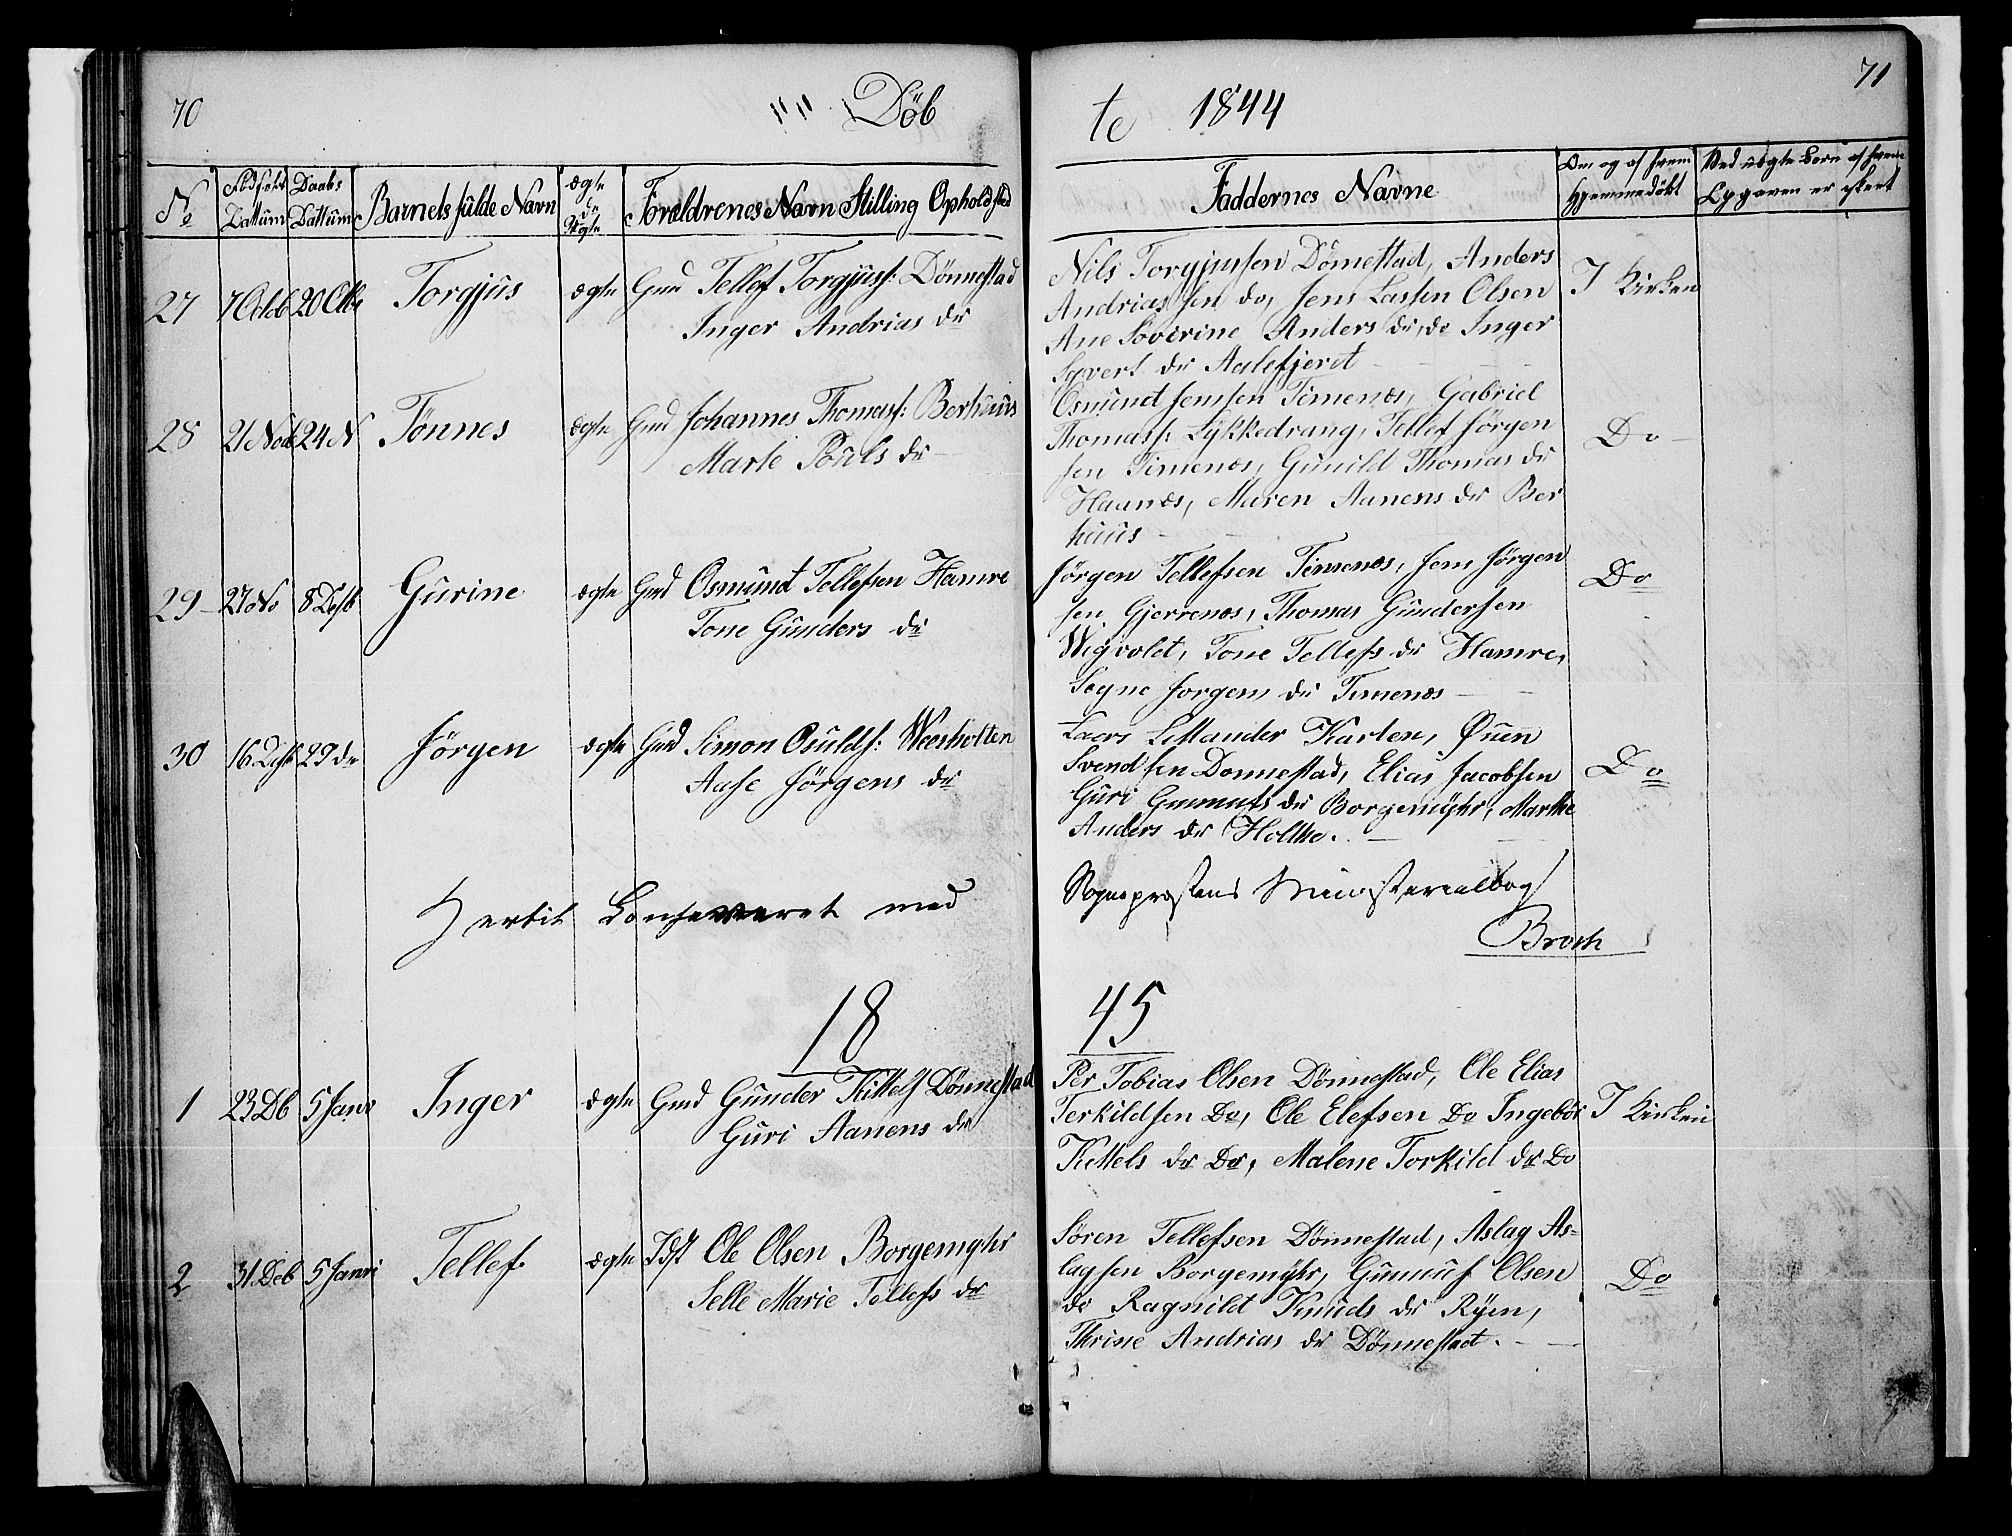 70
Døb
te 1844
71
No
Fødsels Dattum
Daabs Dattum
Barnets fulde Navn
ægte el uægte
Forældrenes Navn Stilling Opholdsted
Faddernes Navne
Om og af hvem Hjemmedøbt
Ved uægte Børn af hvem Opgaven er skeet
27 7 Octob 20 Otbr Torgjus ægte Gmd Tellef Torgjuss: Dönnestad
Inger Andrias dr
Nils Torgjussen Dönnestad, Anders
Andriassen do, Jens Lassen Olsen
Ane Soverine Anders dr, do Inger
Syverts dr Aalefjeret
I Kirken
28 21 Novb 24 N Tönnes ægte Gmd Johannes Thomass: Berhuus
Marte Pouls dr
Osmund Jensen Timenes, Gabriel
Thomass: Lykkedrang, Tellef Jörgen
sen Timenæs, Gunild Thomas dr
Haanæs, Maren Aanens dr Ber
huus
Do
29 27 No 8 Desb Gurine ægte Gmd Osmund Tellefsen Hamre
Tone Gunders dr
Jörgen Tellefsen Timenæs, Jens Jörgen
sen Gjerrenæs, Thomas Gundersen
Wigvolet, Tone Tellefs dr Hamre,
Segne Jorgens dr Timenæs
Do
30 16 Desb 29 de Jörgen ægte Gmd Simon Osulds: Weesholten
Aase Jörgens dr
Laers Karlen, Øuen
Svendsen Donnestad, Elias Jacobsen
Guri Gunnufs dr Borgemyhr, Marthe
Anders dr Holthe.
Do
Hertil Confereret med
Sognepræstens Ministerialbog
Broch
18
45
1 23 Db 5 Janv Inger ægte Gmd Gunder Kittels Dönnestad
Guri Aanens dr
Per Tobias Olsen Dönnestad, Ole Elias
Terkildsen Do, Ole Elefsen Do Ingebör
Kittels dr Do, Malene Torkild dr Do
I Kirken
2 31 Deb 5 Janri Tellef ægte Idst Ole Olsen Borgemyhr
Selle Marie Tellefs dr
Søren Tellefsen Dönnestad, Aslag As-
lagsen Borgemyhr, Gunnuf Olsen
do Ragnild Knuds dr Ryen,
Thrine Andrias dr Dönnestad.
Do